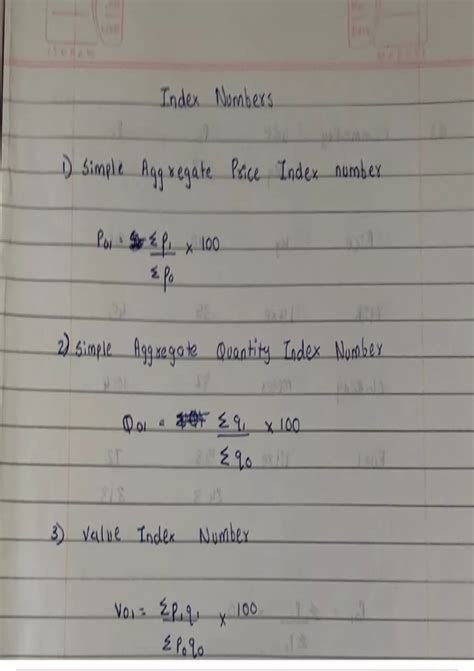 Index Numbers
1) Simple Aggregate Price Index number
P01 = Σp1 / Σp0 × 100
2) Simple Aggregate Quantity Index Number
Q01 = Σq1 / Σq0 × 100
3) Value Index Number
V01 = Σp1q1 / Σp0q0 × 100